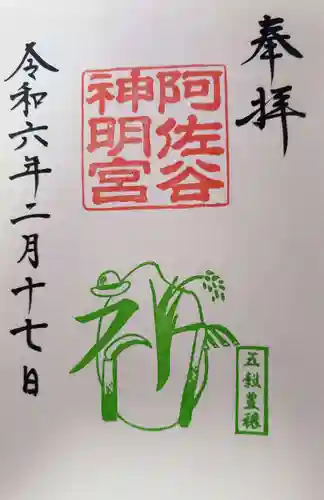 奉拝
阿佐谷
神明宮
五穀豊穣
令和六年二月十七日